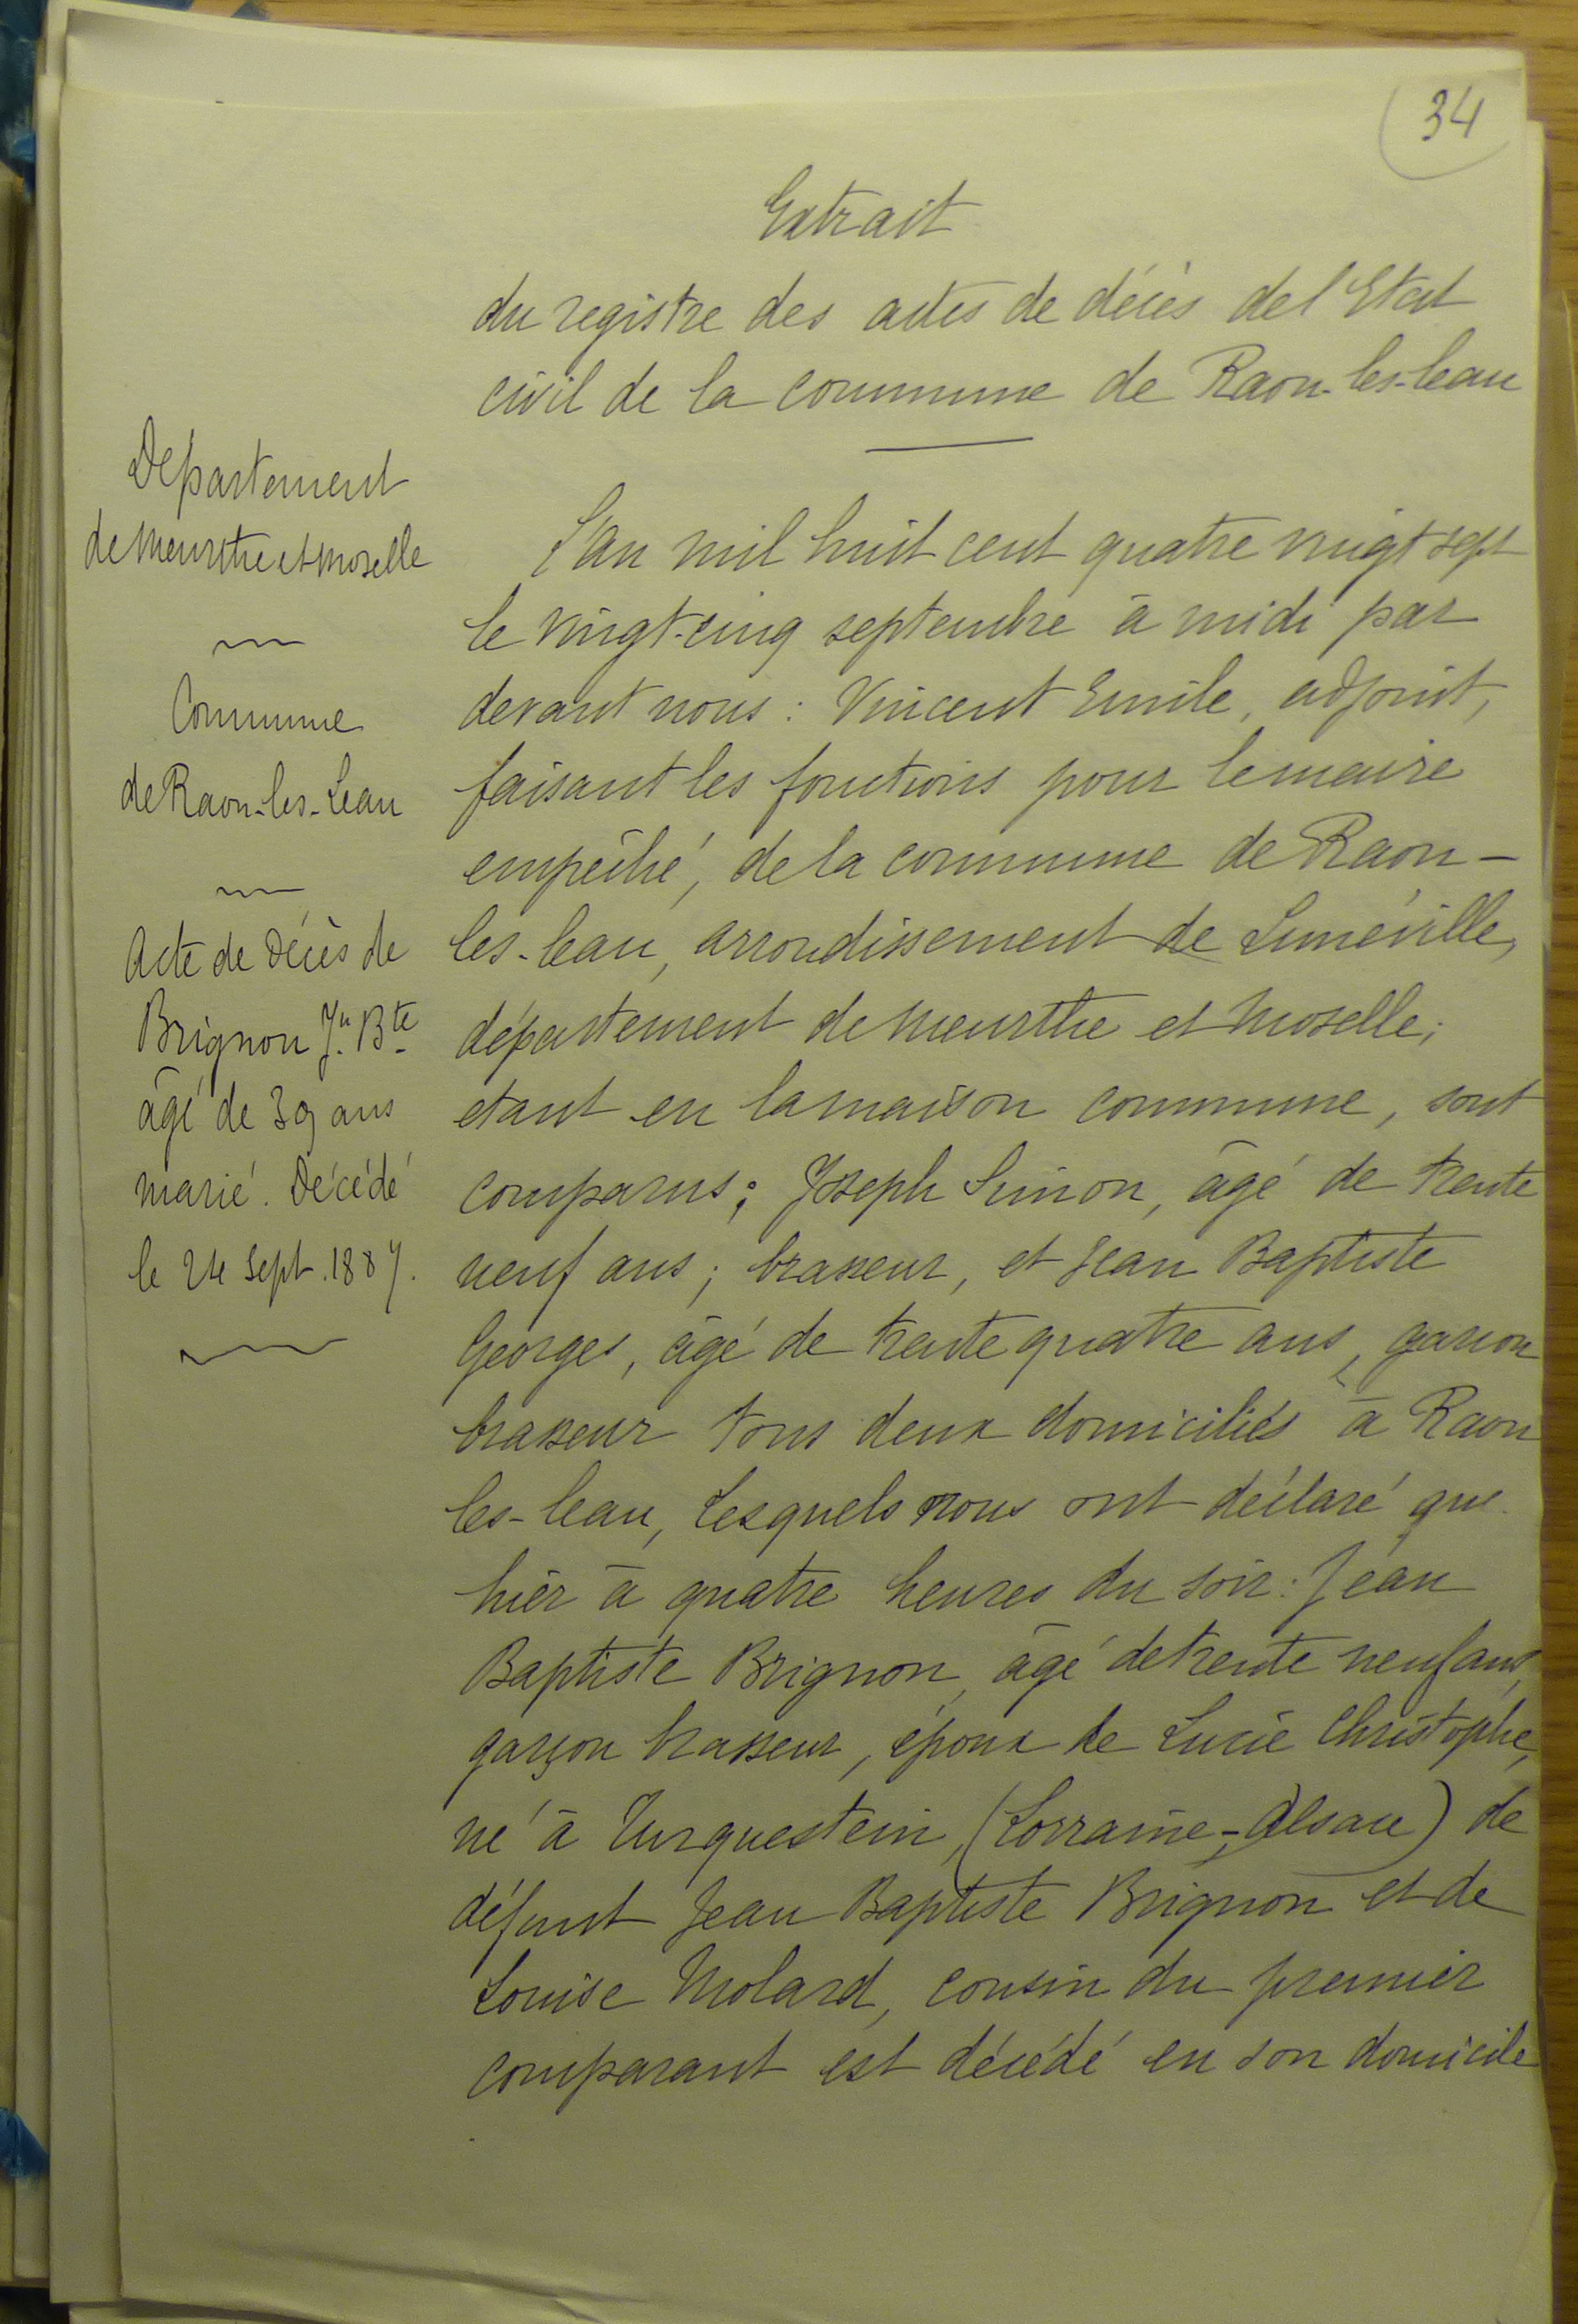 34
Extrait
du registre des actes de décès de l'Etat
civil de la commune de Raon-les-leau
Departement
de Meurthe et Moselle
Commune
de Raon-les-Leau
Acte de Décès de
Brignon Jn Bte
âgé de 39 ans
marié. Décédé
le 24 Sept. 1887.
L'an mil huit cent quatre vingt sept
le vingt-cinq septembre à midi par
devant nous : Vincent Emile, adjoint,
faisant les fonctions pour le maire
empêché, de la commune de Raon-
les-leau, arrondissement de Lunéville,
département de Meurthe et Moselle;
etant en la maison commune, sont
comparus; Joseph Simon, âgé de trente
neuf ans; brasseur, et Jean Baptiste
Georges, âgé de trente quatre ans, garson
brasseur tous deux domiciliés à Raon
les-leau, Lesquels nous ont déclaré que
hier à quatre heures du soir : Jean
Baptiste Brignon, âgé de trente neuf ans,
garçon brasseur, époux de Lucie Christophe,
né à Turquestein, (Lorraine-Alsace) de
défunt Jean Baptiste Brignon et de
Louise Molard, cousin du premier
comparant est décédé en son domicile